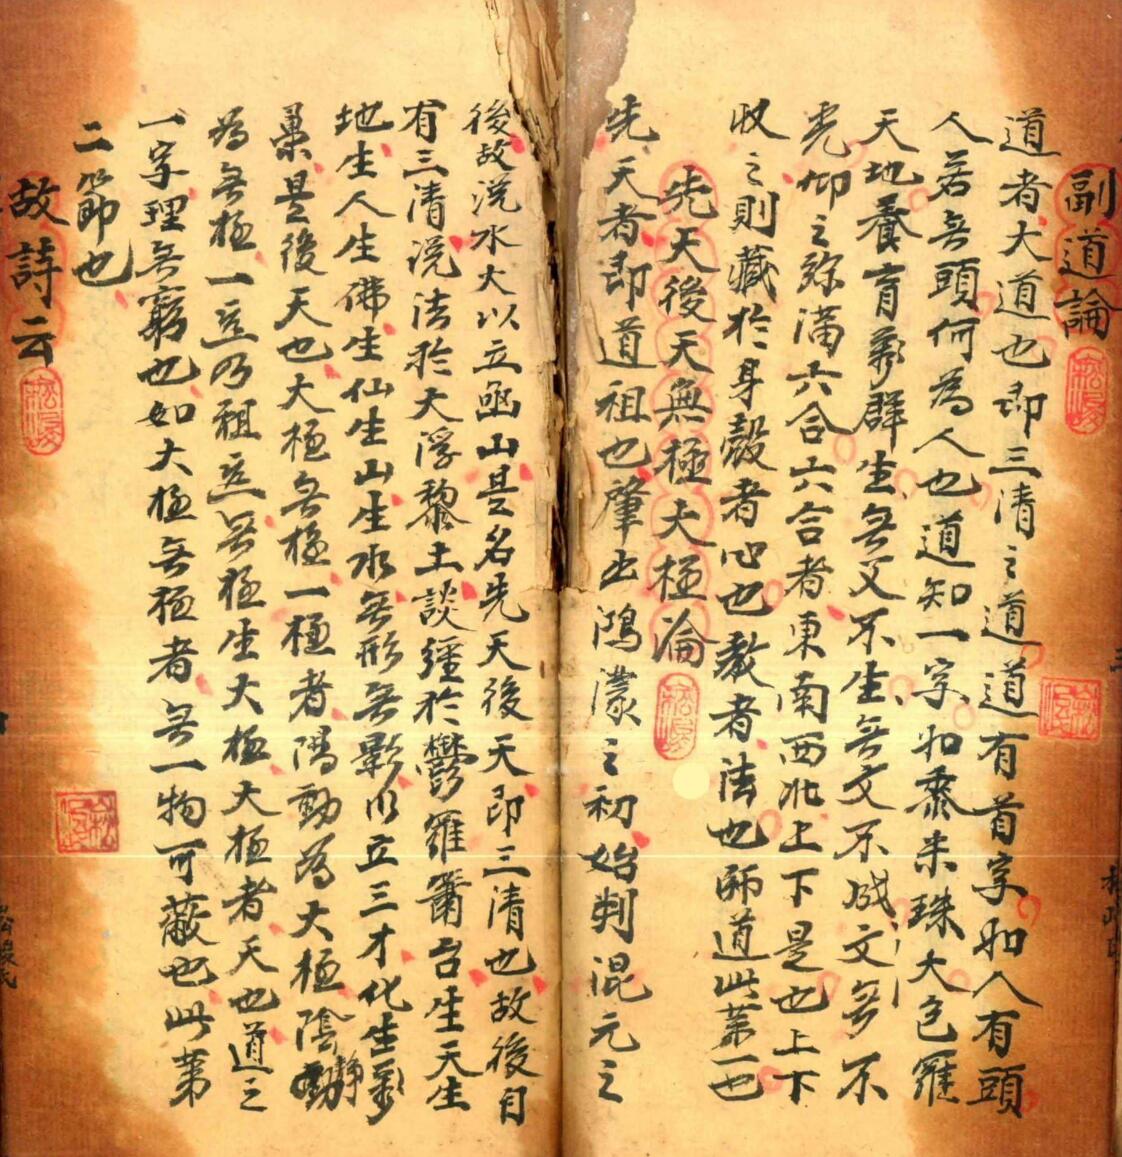 副道論
道者大道也即三清之道道有首字如人有頭
人若無頭何為人也道知一字如黍米珠大包羅
天地養育群生無父不生無文不成文無不
光仰之弥滿六合六合者東南西北上下是也上下
収之則藏於身殼者心也教者法也師道此第一也
先天後天無極大極論
先天者即道祖也肇出鴻濛之初始判混元之
後故說水火以立凾山是名先天後天即三清也故後目
有三清説法於大浮黎土談經於欝羅簫台生天生
地生人生佛生仙生山生水無形無影以立三才化生
最是後天也大極無極一極者陽動為大極陰靜
為無極一立乃祖立無極生大極大極者天也道之
一字理無窮也如大極無極者無一物可蔽也此第
二節也
故詩云